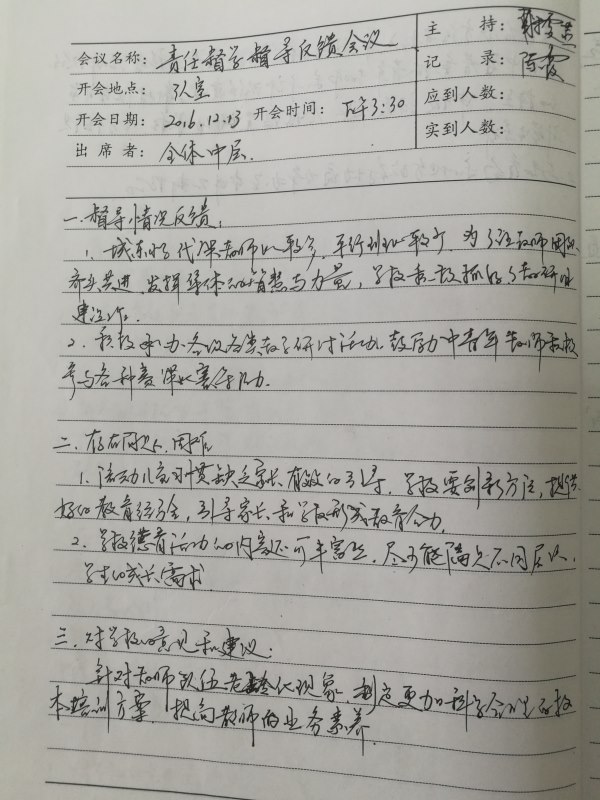 会议名称：责任督学督导反馈会议 主 持：
开会地点：队室 记 录：陈霞
开会日期：2016.12.13 开会时间：下午3:30 应到人数：
实到人数：
出 席 者：全体中层.
一.督导情况反馈：
1、城东 代课教师比较多，平行班比较多，为了让教师团队
齐头共进，发挥集体的智慧与力量，学校 抓好了教研组
建设工作.
2、积极承办各级各类教学研讨活动，鼓励中青年教师积极
参与各种赛课比赛活动.
二、存在问题、困难
1、流动儿童习惯缺乏家长有效的引导，学校要创新方法，提供
好的教育 ，引导家长和学校形成教育合力.
2、学校德育活动的内容还可丰富些，尽可能满足不同层次
学生的成长需求.
三、对学校的意见和建议.
针对教师队伍老龄化现象，制定更加科学合理的校
本培训方案，提高教师的业务素养.